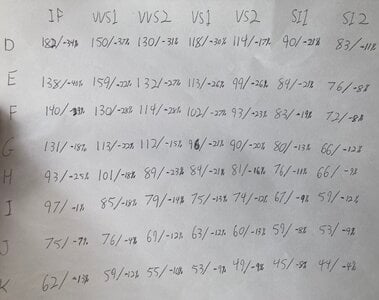 IF VVS1 VVS2 VS1 VS2 SI1 SI2
D 182/-34% 150/-37% 130/-31% 118/-30% 114/-17% 90/-21% 83/-11%
E 138/-40% 159/-22% 132/-27% 113/-26% 99/-26% 84/-21% 76/-8%
F 140/-33% 130/-28% 114/-28% 102/-27% 93/-23% 83/-19% 72/-8%
G 131/-18% 113/-22% 112/-15% 96/-21% 90/-20% 80/-13% 66/-12%
H 93/-25% 101/-18% 89/-23% 84/-21% 81/-16% 76/-11% 66/-9%
I 97/-1% 85/-18% 79/-14% 75/-13% 74/-12% 67/-9% 59/-12%
J 75/-7% 76/-4% 69/-12% 63/-12% 60/-13% 59/-8% 53/-9%
K 62/-13% 59/-12% 55/-10% 53/-9% 49/-9% 45/-8% 44/-4%